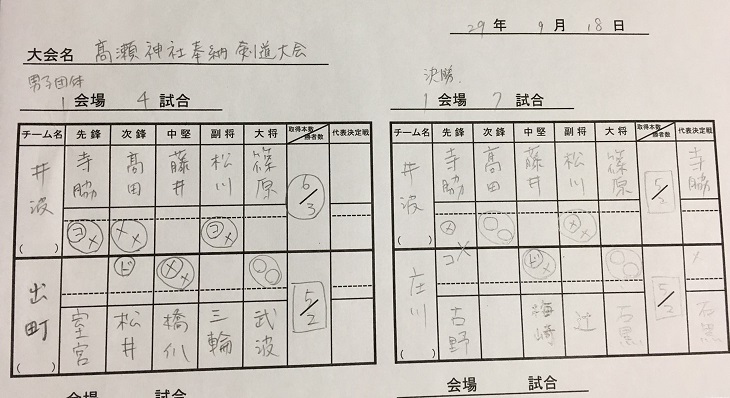 29年 9月 18日
大会名 高瀬神社奉納剣道大会
男子団体
1会場 4試合
チーム名 先鋒 次鋒 中堅 副将 大将 取得本数/勝者数 代表決定戦
井波 寺脇 高田 藤井 松川 篠原 6/3
コメ メメ コメ
( )
ド メメ
出町 室宮 松井 橋爪 三輪 武波 5/2
( )
会場 試合
決勝
1会場 7試合
チーム名 先鋒 次鋒 中堅 副将 大将 取得本数/勝者数 代表決定戦
井波 寺脇 高田 藤井 松川 篠原 5/2 寺脇
メ メメ
( )
コメ ドメ メ
庄川 古野 梅崎 辻 石黒 5/2 石黒
( )
会場 試合